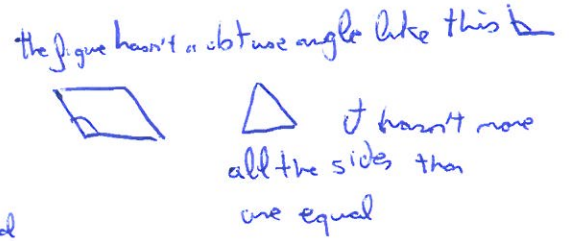 the figure hasn't a obtuse angle like this
It hasn't more
all the sides than
are equal
d